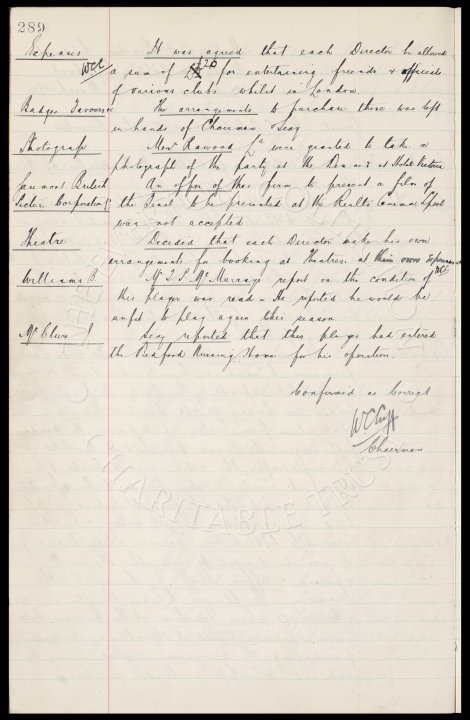 289
Expenses It was agreed that each Director be allowed
WCC a sum of £20 for entertaining friends & officials
of various clubs whilst in London.
Badges Favours &c The arrangements to purchase these was left
in hands of Chairman & Secy
Photograph Messrs Ltd were granted to take a
photograph of the party at the Dinner at Hotel Victoria
Gaumont British An offer of this firm to present a film of
Picture Corporation Ltd the Final to be presented at the Rialto Cinema L'pool
was not accepted
Theatre Decided that each Director make his own
arrangements for booking at Theatres at their own Expense
WCC
Williams B Mr T. P. McMurrays report on the condition of
this player was read. He reported he would be
unfit to play again this season
McClure J Secy reported that this player had entered
the Nursing Home for his operation.
Confirmed as Correct
WCCuff
Chairman
CHARITABLE TRUST